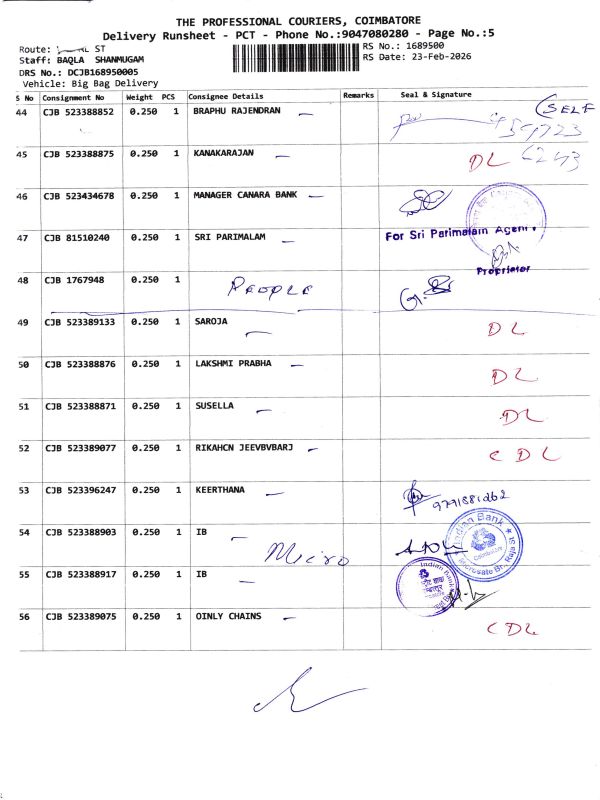 THE PROFESSIONAL COURIERS, COIMBATORE
Delivery Runsheet - PCT - Phone No.:9047080280 - Page No.:5
Route: ST
RS No.: 1689500
Staff: BAQLA SHANMUGAM
RS Date: 23-Feb-2026
DRS No.: DCJB168950005
Vehicle: Big Bag Delivery
S No Consignment No Weight PCS Consignee Details Remarks Seal & Signature
44 CJB 523388852 0.250 1 BRAPHU RAJENDRAN SELF
45 CJB 523388875 0.250 1 KANAKARAJAN DL
46 CJB 523434678 0.250 1 MANAGER CANARA BANK
47 CJB 81510240 0.250 1 SRI PARIMALAM For Sri Parimalam Agen
Proprietor
48 CJB 1767948 0.250 1 PEOPLE
49 CJB 523389133 0.250 1 SAROJA DL
50 CJB 523388876 0.250 1 LAKSHMI PRABHA DL
51 CJB 523388871 0.250 1 SUSELLA DL
52 CJB 523389077 0.250 1 RIKAHCN JEEVBVBARJ CDL
53 CJB 523396247 0.250 1 KEERTHANA
54 CJB 523388903 0.250 1 IB Micro Indian Bank
55 CJB 523388917 0.250 1 IB Indian Bank
56 CJB 523389075 0.250 1 OINLY CHAINS CDL